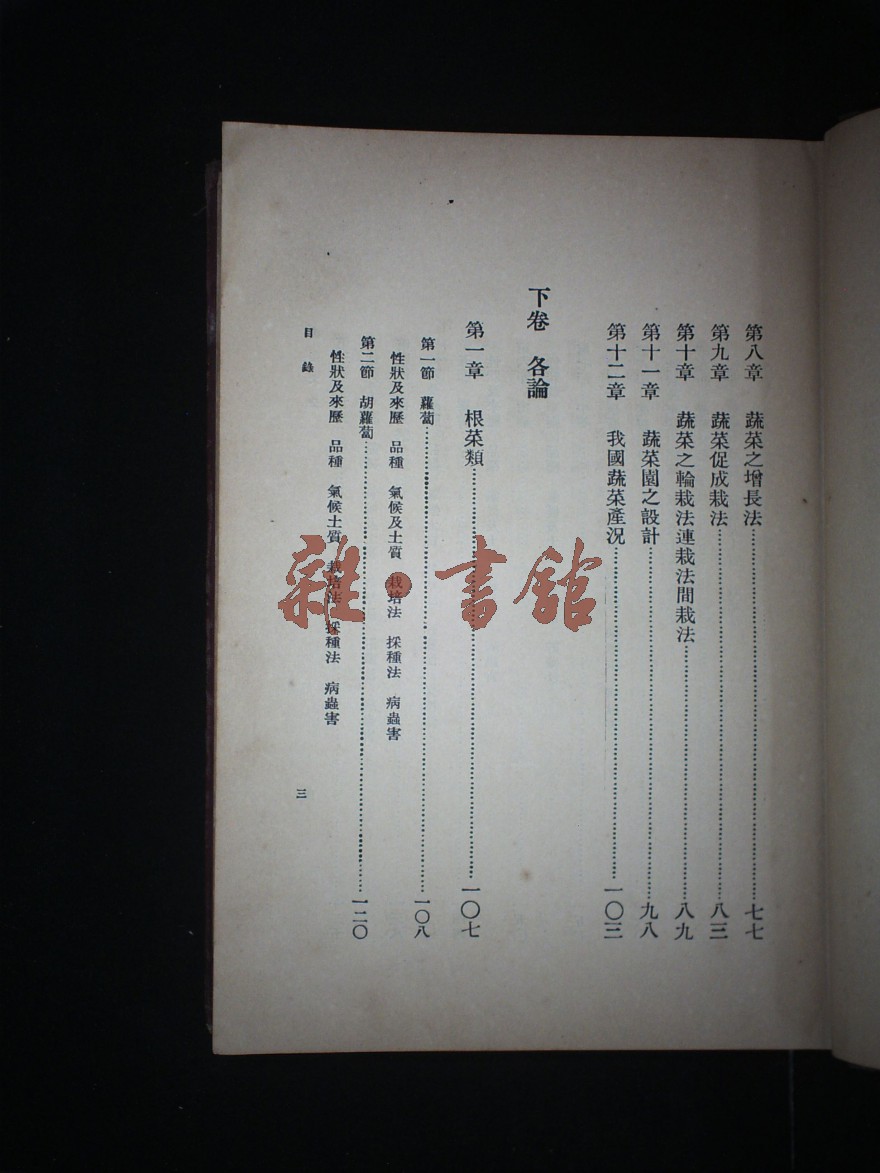 第八章　蔬菜之增長法……七七
第九章　蔬菜促成栽法……八三
第十章　蔬菜之輪栽法連栽法間栽法……八九
第十一章　蔬菜園之設計……九八
第十二章　我國蔬菜產況……一〇三
下卷　各論
第一章　根菜類……一〇七
第一節　蘿蔔……一〇八
性狀及來歷　品種　氣候及土質　栽培法　採種法　病蟲害
第二節　胡蘿蔔……一二〇
性狀及來歷　品種　氣候土質　栽培法　採種法　病蟲害
目錄　三
雜·書館